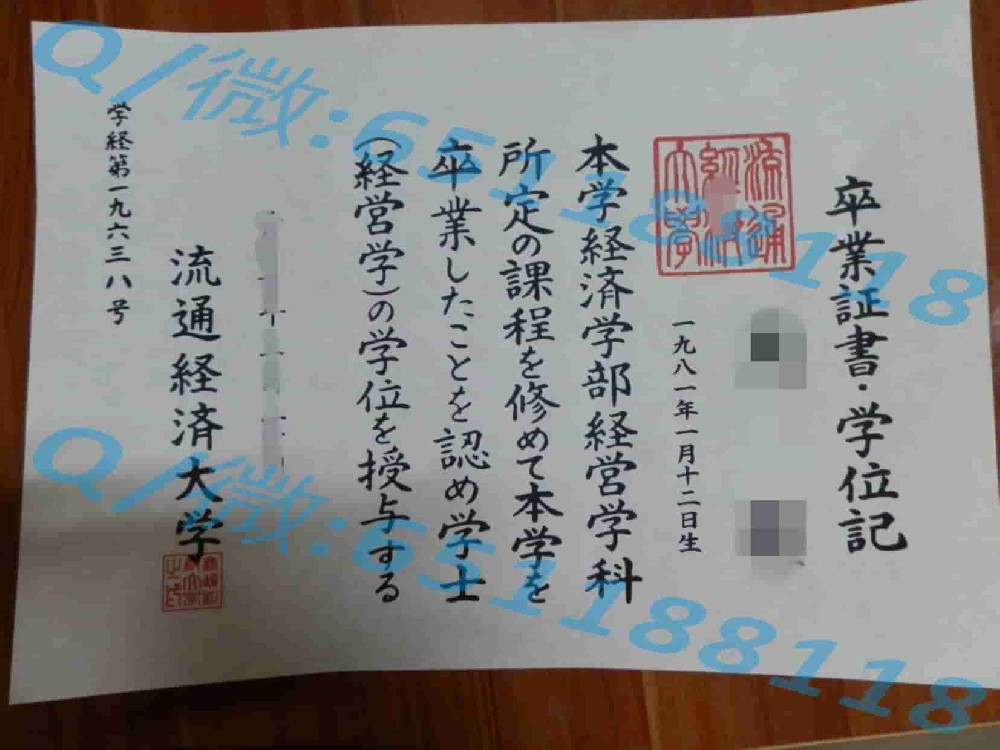 卒業証書・学位記
流通
經済
大學
一九八一年一月十二日生
本学経済学部経営学科
所定の課程を修めて本学を
卒業したことを認め学士
(経営学)の学位を授与する
流通経済大学
学経第一九六三八号
Q/微:651188118
Q/微:651188118